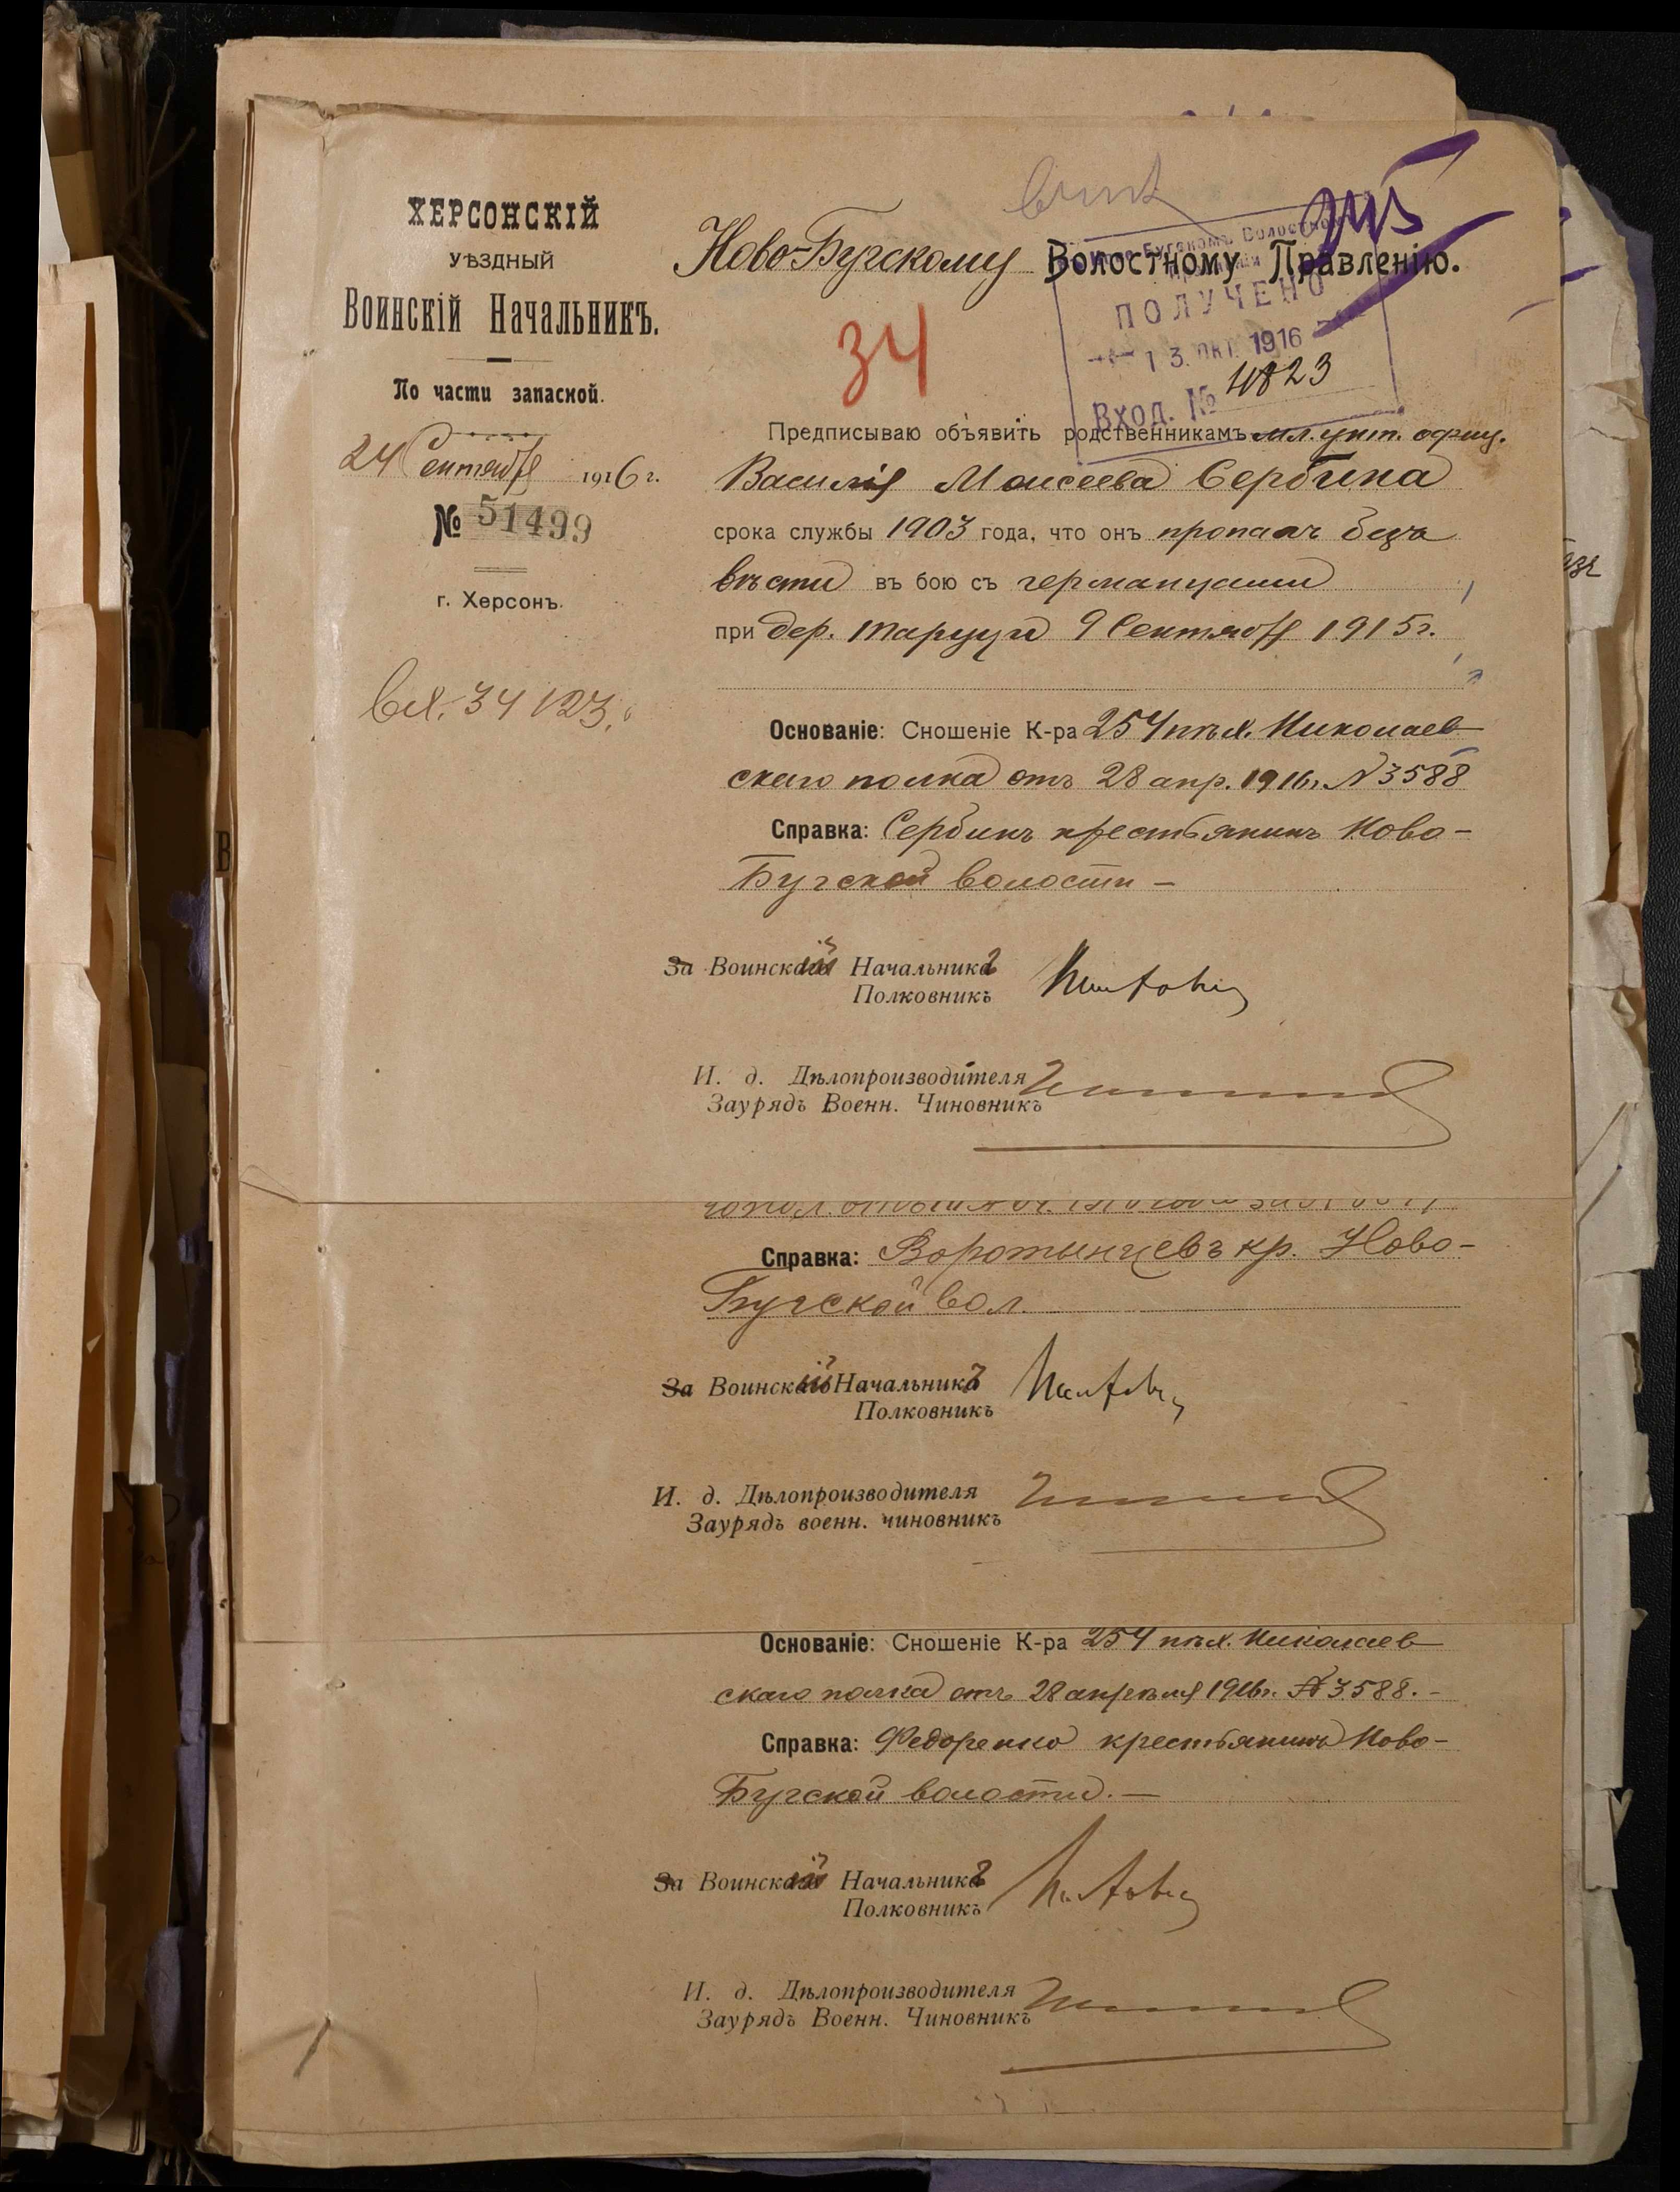 ХЕРСОНСКІЙ
УѢЗДНЫЙ
Воинскій Начальникъ.
По части запасной.
24 Сентября 1916 г.
№ 51499
г. Херсонъ.
вх. 34123.
Ново-Бугскому Волостному Правленію.
34
ПОЛУЧЕНО
13. окт. 1916
Вход. № 4823
Предписываю объявить родственникамъ мл. унт. офиц.
Василія Моисеева Сербина
срока службы 1903 года, что онъ пропалъ безъ
вѣсти въ бою съ германцами
при дер. 9 Сентября 1915 г.
Основаніе: Сношеніе К-ра 254 пѣх. Николаев
скаго полка отъ 28 апр. 1916 г. № 3588
Справка: Сербинъ крестьянинъ Ново-
Бугской волости –
За Воинскій Начальникъ
Полковникъ
И. д. Дѣлопроизводителя
Заурядъ Военн. Чиновникъ
Справка: Воротынцевъ кр. Ново-
Бугской вол.
За Воинскій Начальникъ
Полковникъ
И. д. Дѣлопроизводителя
Заурядъ военн. чиновникъ
Основаніе: Сношеніе К-ра 254 пѣх. Николаев
скаго полка отъ 28 апрѣля 1916 г. № 3588. –
Справка: Федоренко крестьянинъ Ново-
Бугской волости. –
За Воинскій Начальникъ
Полковникъ
И. д. Дѣлопроизводителя
Заурядъ Военн. Чиновникъ
В